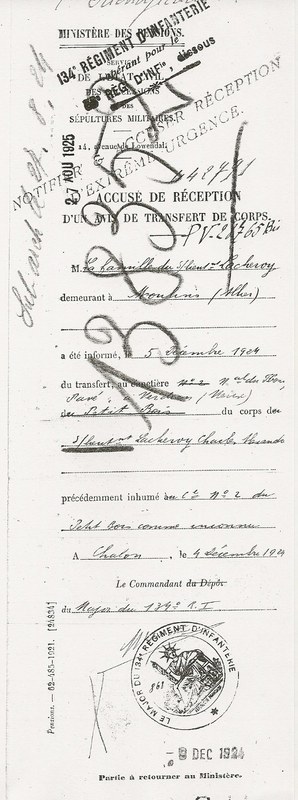 MINISTÈRE DES PENSIONS.
134e RÉGIMENT D'INFANTERIE
opérant pour le
RÉG. D'INFie dissous
SERVICE
DE L'ÉTAT CIVIL
DES SUCCESSIONS
ET DES
SÉPULTURES MILITAIRES
14, avenue de Lowendal.
NOTIFIER ACCUSER RÉCEPTION
D'EXTRÊME URGENCE.
27 AOU 1925
13835
42791
ACCUSÉ DE RÉCEPTION
D'UN AVIS DE TRANSFERT DE CORPS.
PV. 2765 Bis
M. La famille du Lacheroy
demeurant à Moulins (Allier)
a été informé, le 5 décembre 1924
du transfert, au cimetière No 2 Nal du fbg
Pavé, Verdun (Meuse)
du Petit Bois du corps de
Lacheroy Charles
précédemment inhumé au Cre No 2 du
Petit bois comme inconnu
A Chalon, le 4 décembre 1924
Le Commandant du Dépôt
du Major du 134e R.I
LE MAJOR DU 134e RÉGIMENT D'INFANTERIE
- 9 DEC 1924
Partie à retourner au Ministère.
Pensions. — 62-485-1921. [24834]